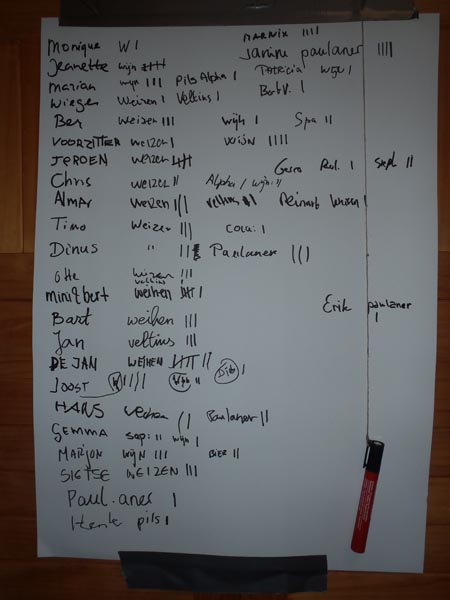 Monique W I
MARNIX IIII
Jeanette wijn IIII
Janine paulaner IIII
Patricia wijn I
Marian wijn III Pils Alpha I
Bert V. I
Wieger Weizen I Veltins I
Ber weizen III wijn I Spa II
VOORZITTER weizen I WIJN IIII
JEROEN weizen IIII
Gerco Rad. I
Chris weizen II Alpha I wijn II
Almar weizen III veltins II Reinart weizen I
Timo Weizen III COLA: I
Dinus " III Paulaner III
Otto weizen III
veltins I
mini Ebert weihen IIII I
Erik paulaner
I
Bart weihen III
Jan veltins III
DE JAN WEIHEN IIII II
JOOST W IIII Wijn II I
HANS weizen II Paulaner II
GEMMA sap: II wijn I
MARJON WIJN III BIER II
SIETSE WEIZEN III
Paul.aner I
Henk pils I